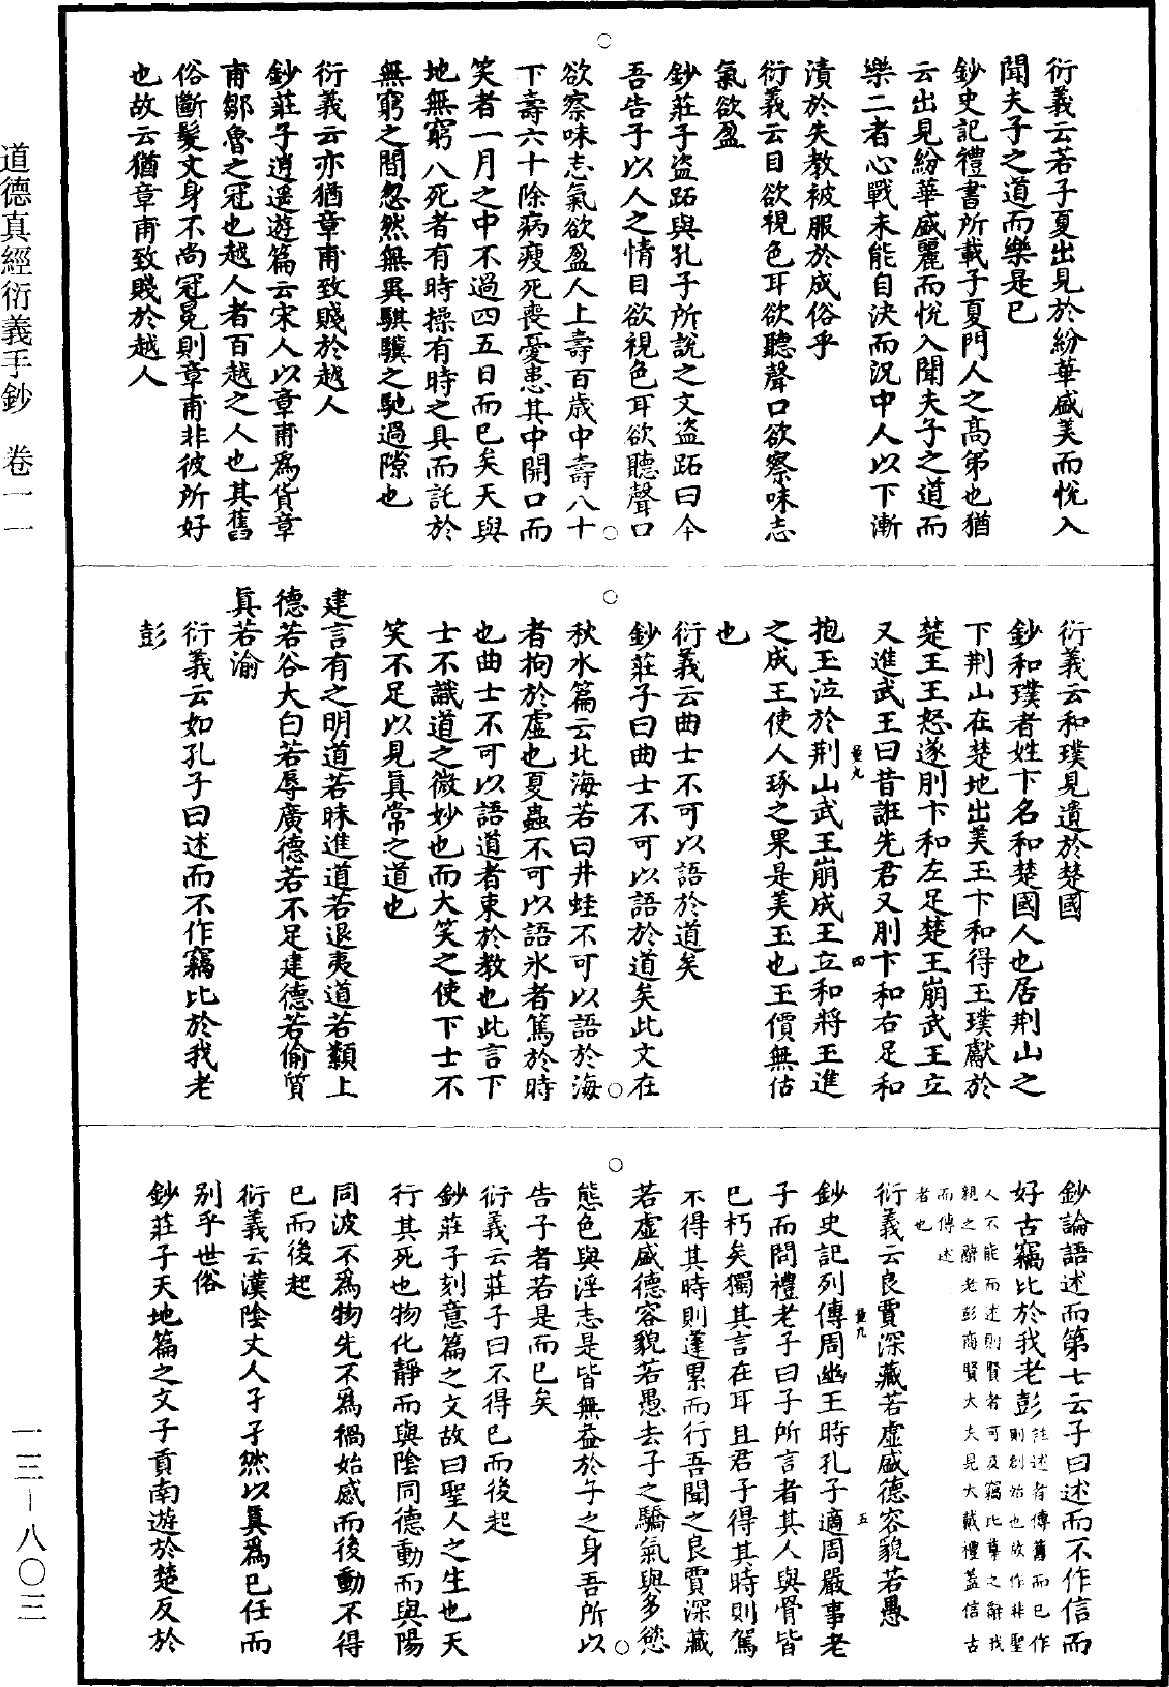 衍義云若子夏出見於紛華盛美而悅入
聞夫子之道而樂是已
鈔史記禮書所載子夏門人之高弟也猶
云出見紛華盛麗而悅入聞夫子之道而
樂二者心戰未能自決而況中人以下漸
漬於失教被服於成俗乎
衍義云目欲視色耳欲聽聲口欲察味志
氣欲盈
鈔莊子盜跖與孔子所說之文盜跖曰今
吾告子以人之情目欲視色耳欲聽聲口
欲察味志氣欲盈人上壽百歲中壽八十
下壽六十除病瘦死喪憂患其中開口而
笑者一月之中不過四五日而已矣天與
地無窮八死者有時操有時之具而託於
無窮之間忽然無異騏驥之馳過隙也
衍義云亦猶章甫致賤於越人
鈔莊子逍遥遊篇云宋人以章甫爲貨章
甫鄒魯之冠也越人者百越之人也其舊
俗斷髮文身不尚冠冕則章甫非彼所好
也故云猶章甫致賤於越人
衍義云和璞見遺於楚國
鈔和璞者姓卞名和楚國人也居荆山之
下荆山在楚地出美玉卞和得玉璞獻於
楚王王怒遂刖卞和左足楚王崩武王立
又進武王曰昔誑先君又刖卞和右足和
抱玉泣於荆山武王崩成王立和將玉進
之成王使人琢之果是美玉也王價無估
也
衍義云曲士不可以語於道矣
鈔莊子曰曲士不可以語於道矣此文在
秋水篇云北海若曰井蛙不可以語於海
者拘於虛也夏蟲不可以語氷者篤於時
也曲士不可以語道者束於教也此言下
士不識道之微妙也而大笑之使下士不
笑不足以見眞常之道也
建言有之明道若昧進道若退夷道若纇上
德若谷大白若辱廣德若不足建德若偷質
眞若渝
衍義云如孔子曰述而不作竊比於我老
彭
鈔論語述而第七云子曰述而不作信而
好古竊比於我老彭註述者傳舊而已作
則創始也故作非聖
人不能而述則賢者可及竊比尊之辭我
親之辭老彭商賢大夫見大戴禮蓋信古
而傳述
者也
衍義云良賈深藏若虛盛德容貌若愚
鈔史記列傳周幽王時孔子適周嚴事老
子而問禮老子曰子所言者其人與骨皆
已朽矣獨其言在耳且君子得其時則駕
不得其時則蓬累而行吾聞之良賈深藏
若虛盛德容貌若愚去子之驕氣與多慾
態色與淫志是皆無益於子之身吾所以
告子者若是而已矣
衍義云莊子曰不得已而後起
鈔莊子刻意篇之文故曰聖人之生也天
行其死也物化靜而與陰同德動而與陽
同波不爲物先不爲禍始感而後動不得
已而後起
衍義云漢陰丈人孑孑然以眞爲已任而
別乎世俗
鈔莊子天地篇之文子貢南遊於楚反於
量九
四
量九
五
道德真經衍義手鈔 卷一一
一三－八〇三